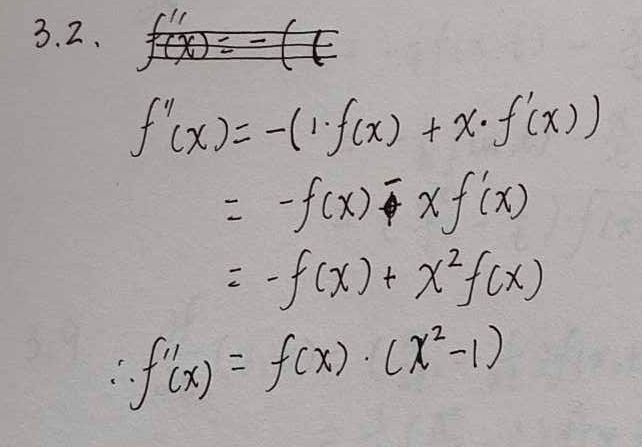 3.2. f''(x) = - ( (
f''(x) = -(1·f(x) + x·f'(x))
= -f(x) - x f'(x)
= -f(x) + x²f(x)
∴ f''(x) = f(x)·(x²-1)